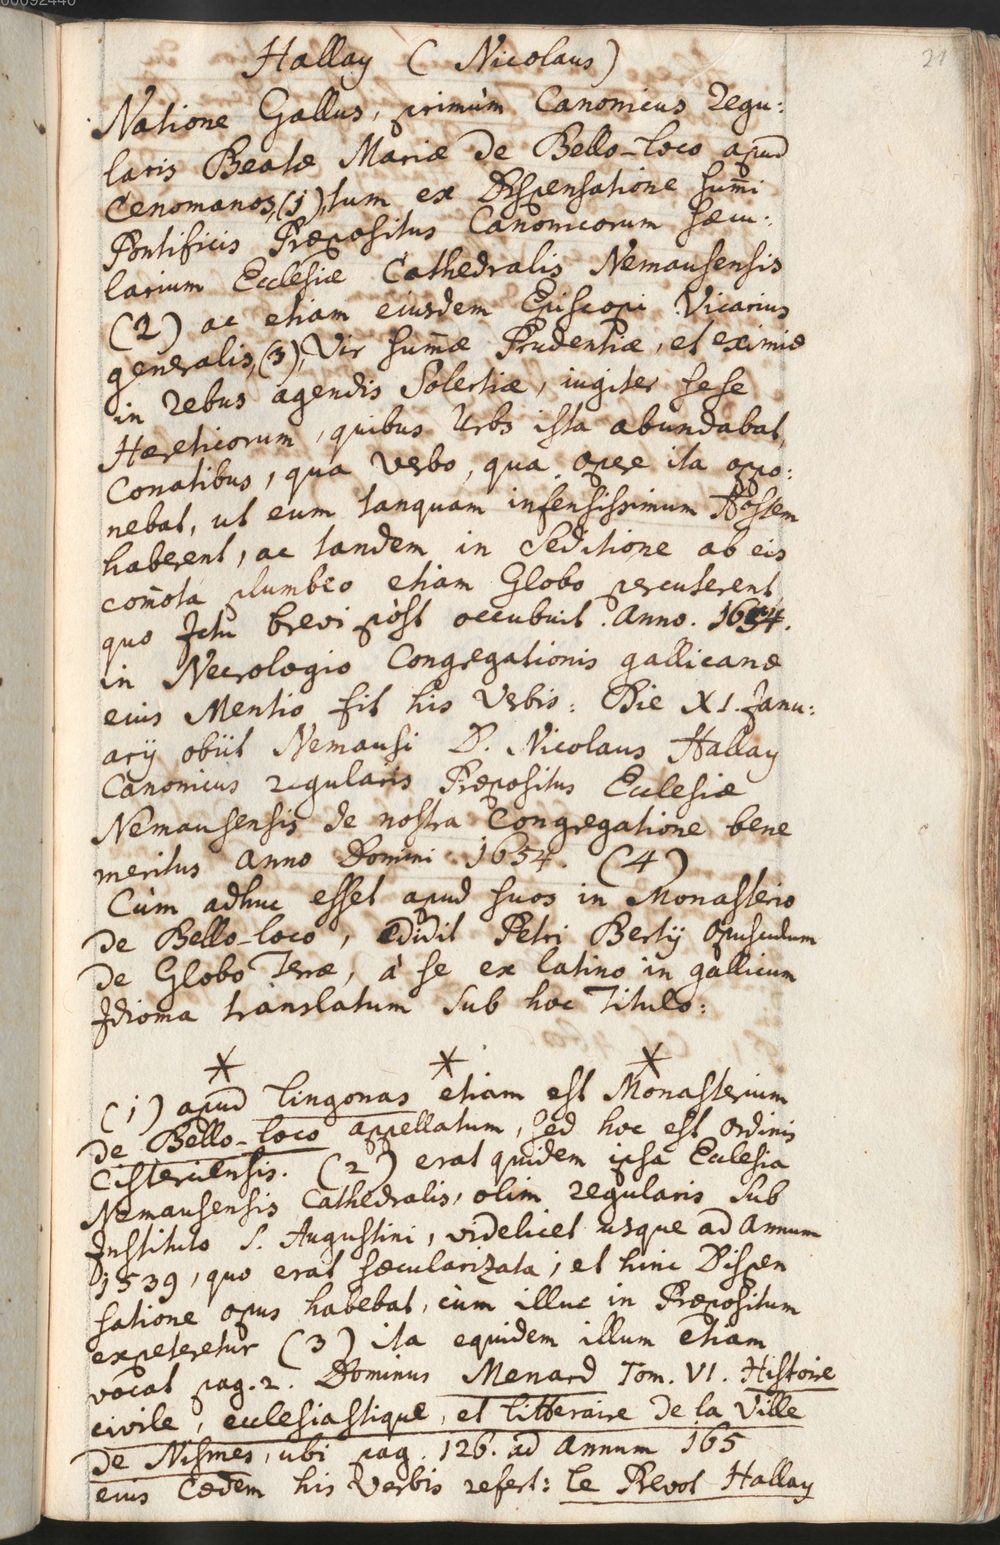 00092440
21
Hallay ( Nicolaus)
Natione Gallus, primùm Canonicus Regu:
laris Beatæ Mariæ de Bello-loco apud
Cenomanos,(1), tum ex Dispensatione sum̄i
Pontificis Præpositus Canonicorum sæcu:
larium Ecclesiæ Cathedralis Nemausensis
(2) ac etiam eiusdem Episcopi Vicarius
generalis,(3), Vir sum̄æ Prudentiæ, et eximiæ
in Rebus agendis Solertiæ, iugiter sese
Hæreticorum, quibus Urbs ista abundabat,
Conatibus, qua Verbo, qua opere ita oppo:
nebat, ut eum tanquam infensissimum Hostem
haberent, ac tandem in Seditione ab eis
com̄ota plumbeo etiam Globo percuterent
quo Jctu brevi pòst occubuit. Anno. 1654.
in Necrologio Congregationis gallicanæ
eius Mentio fit his Verbis: Die XI. Janu:
arij obiit Nemausi D. Nicolaus Hallay
Canonicus regularis Præpositus Ecclesiæ
Nemausensis de nostra Congregatione bene
meritus anno Domini. 1654. (4)
Cùm adhuc esset apud suos in Monasterio
de Bello-loco, edidit Petri Bertij Opusculum
de Globo Terræ, à se ex latino in gallicum
Jdioma translatum sub hoc Titulo:
* * *
(1) apud Lingonas etiam est Monasterium
de Bello-loco appellatum, sed hoc est Ordinis
Cisterciensis. (2) erat quidem ipsa Ecclesia
Nemausensis Cathedralis, olim regularis sub
Jnstituto S. Augustini, videlicet usque ad Annum
1539, quo erat sæcularizata; et hinc Dispen
satione opus habebat, cùm illuc in Præpositum
expeteretur (3) ita equidem illum etiam
vocat pag. 2. Dominus Menard Tom. VI. Histoire
civile, ecclesiastique, et litteraire de la Ville
de Nismes, ubi pag. 126. ad Annum 165
eius Cædem his Verbis refert: le Prevot Hallay